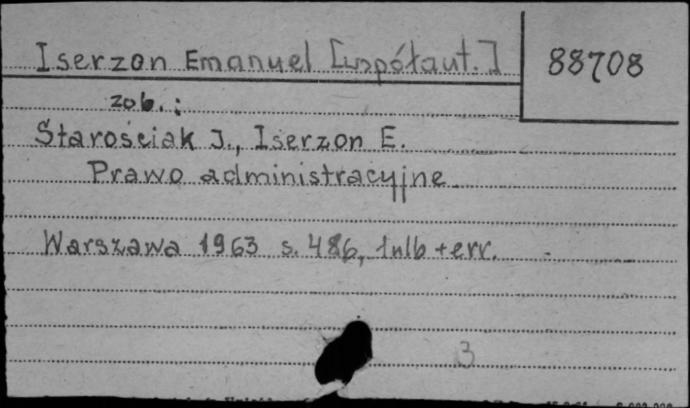 Iserzon Emanuel [współaut.]
88708
zob.:
Starościak J., Iserzon E.
Prawo administracyjne.
Warszawa 1963 s. 486, 1nlb + err.
3